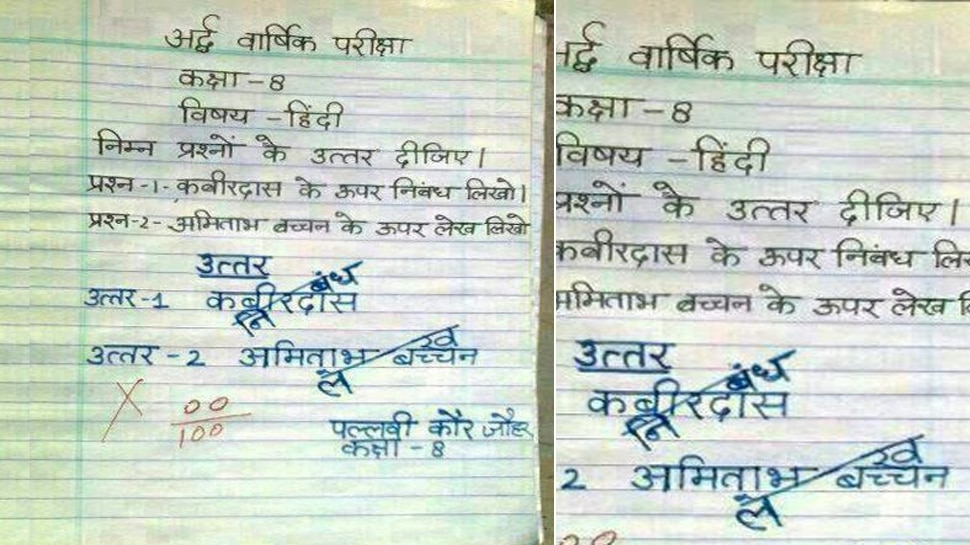 अर्द्ध वार्षिक परीक्षा
कक्षा - 8
विषय - हिंदी
निम्न प्रश्नों के उत्तर दीजिए।
प्रश्न -1- कबीरदास के ऊपर निबंध लिखो।
प्रश्न-2- अमिताभ बच्चन के ऊपर लेख लिखो
उत्तर
उत्तर-1 कबीरदास
निबंध
उत्तर - 2 अमिताभ बच्चन
लेख
X 00/100
पल्लवी कौर जौहर
कक्षा - 8
र्द्ध वार्षिक परीक्षा
कक्षा - 8
विषय - हिंदी
प्रश्नों के उत्तर दीजिए।
कबीरदास के ऊपर निबंध लि
अमिताभ बच्चन के ऊपर लेख लि
उत्तर
कबीरदास
निबंध
2 अमिताभ बच्चन
लेख
00